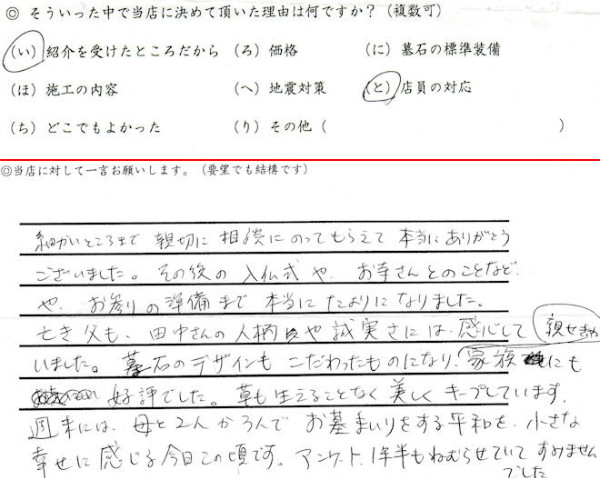 ◎ そういった中で当店に決めて頂いた理由は何ですか？（複数可）
（い）紹介を受けたところだから （ろ）価格 （に）墓石の標準装備
（ほ）施工の内容 （へ）地震対策 （と）店員の対応
（ち）どこでもよかった （り）その他（ ）
◎当店に対して一言お願いします。（要望でも結構です）
細かいところまで 親切に 相談にのってもらえて 本当にありがとう
ございました。その後の 入仏式 や、お寺さんとのことなど
や、お参りの準備まで 本当に たよりになりました。
亡き父も、田中さんの人柄や誠実さには、感心して
いました。墓石のデザインも こだわったものになり、家族 親せきや にも
好評でした。草も生えることなく 美しく キープしています。
週末には、母と2人か3人で お墓まいりをする平和を、小さな
幸せに感じる今日この頃です。アンケート、1年半もねむらせていて すみません
でした